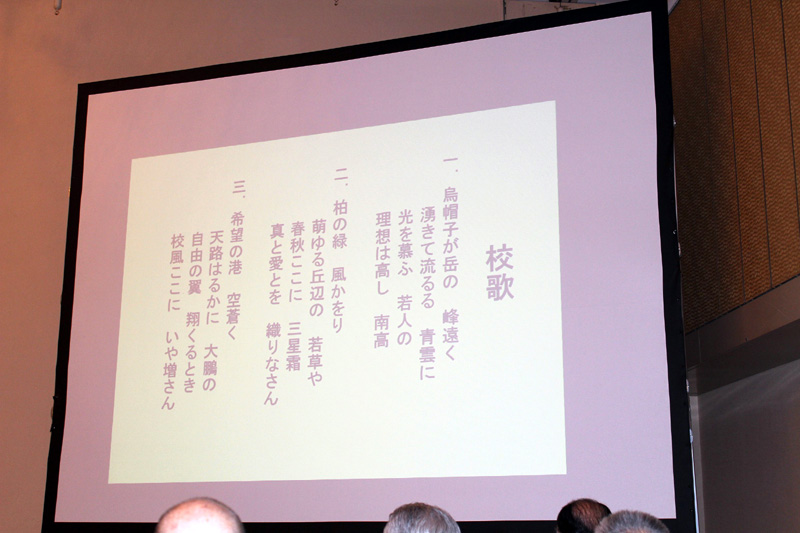 校歌
一．烏帽子が岳の　峰遠く
湧きて流るる　青雲に
光を慕ふ　若人の
理想は高し　南高
二．柏の緑　風かをり
萌ゆる丘辺の　若草や
春秋ここに　三星霜
真と愛とを　織りなさん
三．希望の港　空蒼く
天路はるかに　大鵬の
自由の翼　翔くるとき
校風ここに　いや増さん